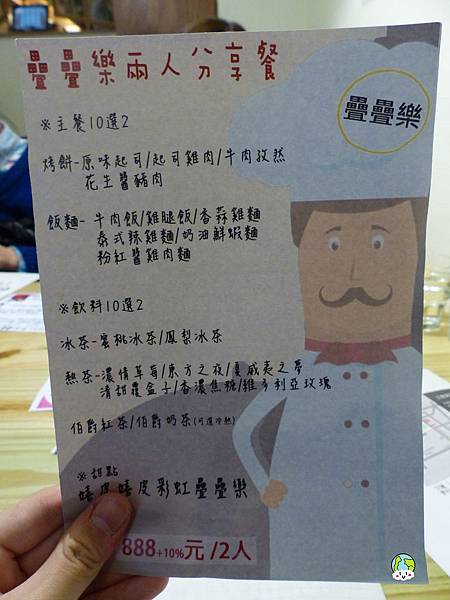 疊疊樂兩人分享餐
疊疊樂
※主餐10選2
烤餅-原味起司/起司雞肉/牛肉孜然
花生醬豬肉
飯麵-牛肉飯/雞腿飯/香蒜雞麵
泰式辣雞麵/奶油鮮蝦麵
粉紅醬雞肉麵
※飲料10選2
冰茶-蜜桃冰茶/鳳梨冰茶
熱茶-濃情草莓/東方之夜/夏威夷之夢
清甜覆盆子/香濃焦糖/維多利亞玫瑰
伯爵紅茶/伯爵奶茶(可選冷熱)
※甜點
嬉皮嬉皮彩虹疊疊樂
888+10%元/2人